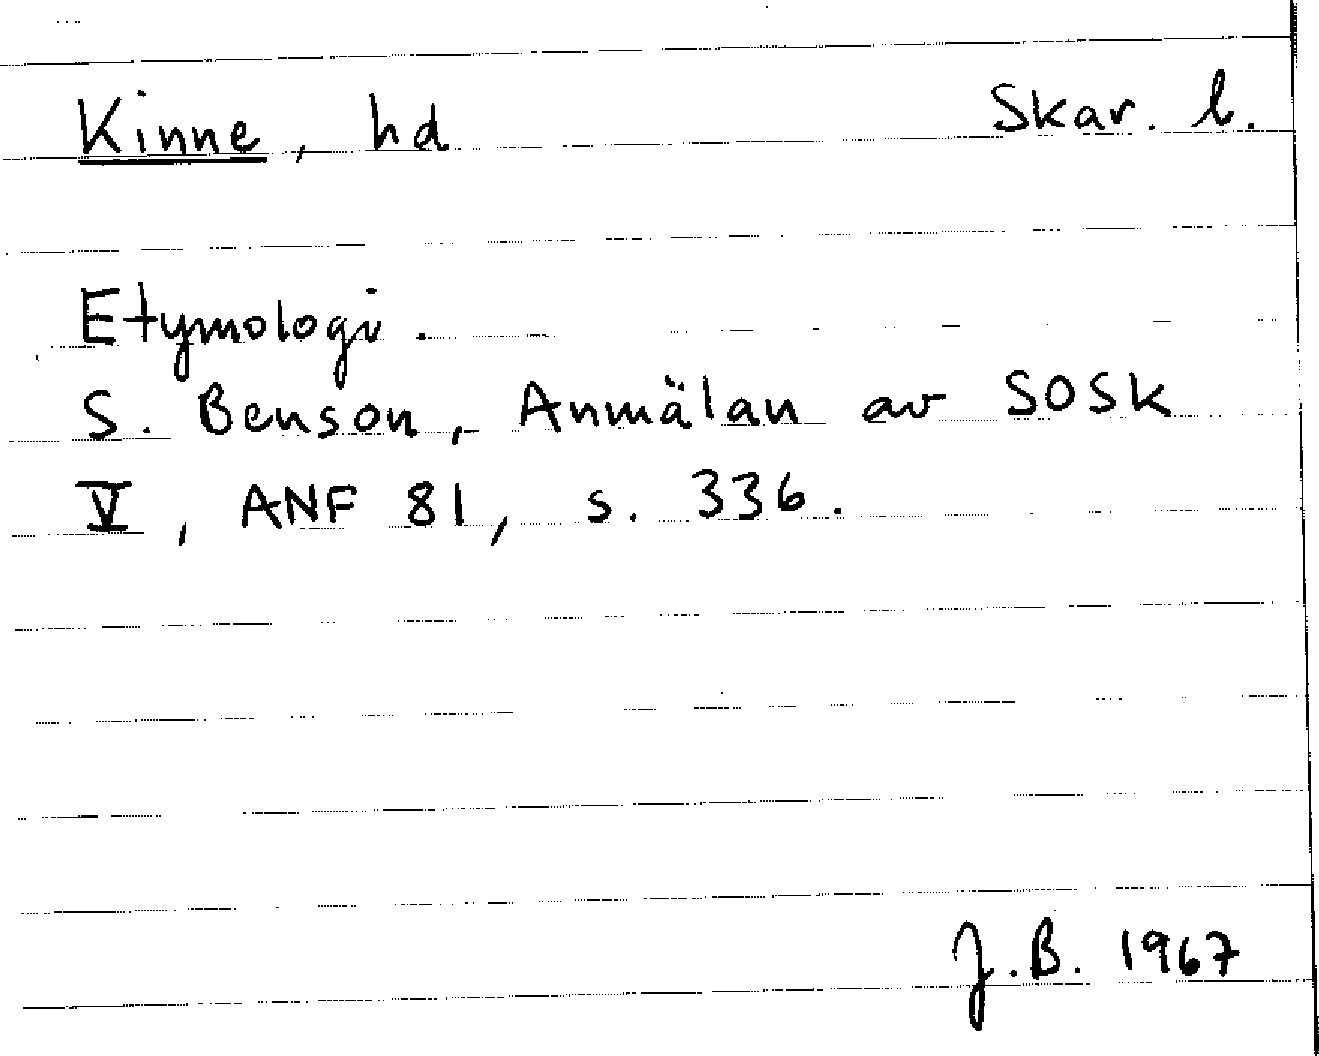 Kinne, hd Skar. l.
Etymologi.
S. Benson, Anmälan av SOSk
V, ANF 81, s. 336.
J.B. 1967